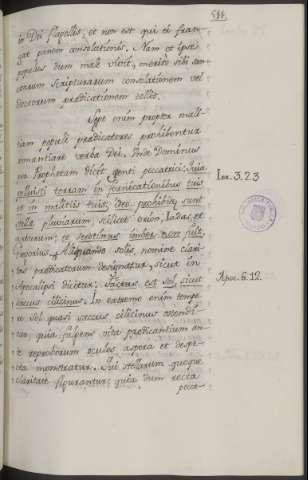 588.
in Dei Flagellis, et non est qui ei fran-
gat panem consolationis. Nam et ipse
populus dum male vivit, merito sibi san-
ctarum scripturarum consolationem vel
doctorum prædicationem tollit.
Sepe enim propter mali-
tiam populi prædicatores prohibentur
annuntiare verba Dei. Unde Dominus
Prophetam dicit genti peccatrici: Quia
polluisti terram in fornicationibus tuis
et in malitiis tuis, ideo prohibitæ sunt
stellæ pluviarum, scilicet orion, hiadas, et
arcturum; et serotinus imber non fuit
populus. Aliquando solis nomine clari-
tas prædicatorum designatur, sicut in
Apocalipsi dicitur: Factus est sol sicut
saccus cilicinus. In extremo enim tempo-
re sol quasi saccus cilicinus ostendi-
tur, quia fulgens vita prædicantium an-
te reproborum oculos aspera et despe-
cta monstratur. Qui stellarum quoque
claritati figurantur, quia dum recta
pecca-
Iere. 3.23
Apoc. 6.12.